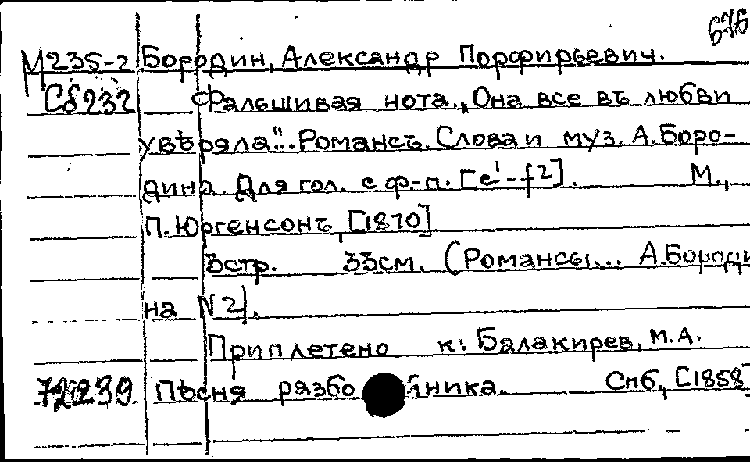 М235-2 Бородин, Александр Порфирьевич.
Сб232 Фальшивая нота. „Она все въ любви
увѣряла". Романсъ. Слова и муз. А. Боро-
дина. Для гол. с ф-п. [e¹-f²]. М.,
П. Юргенсонъ, [1870]
3стр. 33см. (Романсы... А. Бороди
на N2).
Приплетено к: Балакирев, М.А.
Пѣсня разбойника. Спб, [1858]